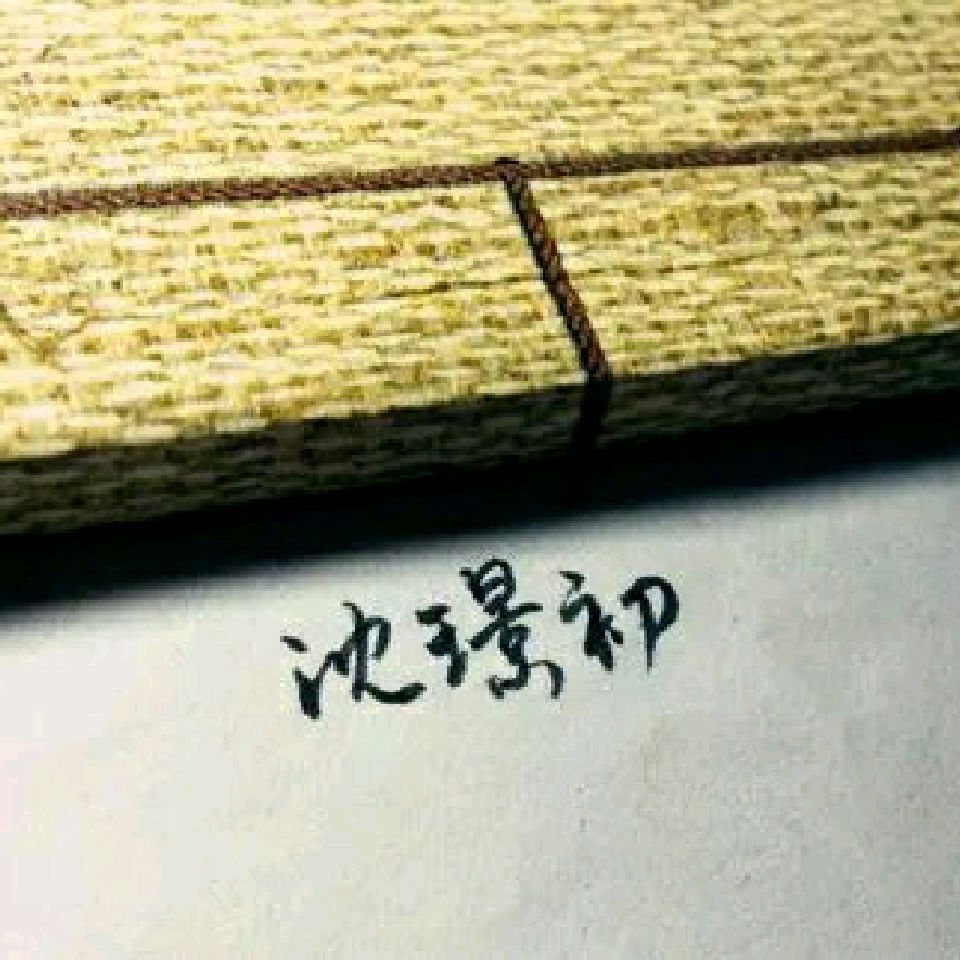 沈璟初